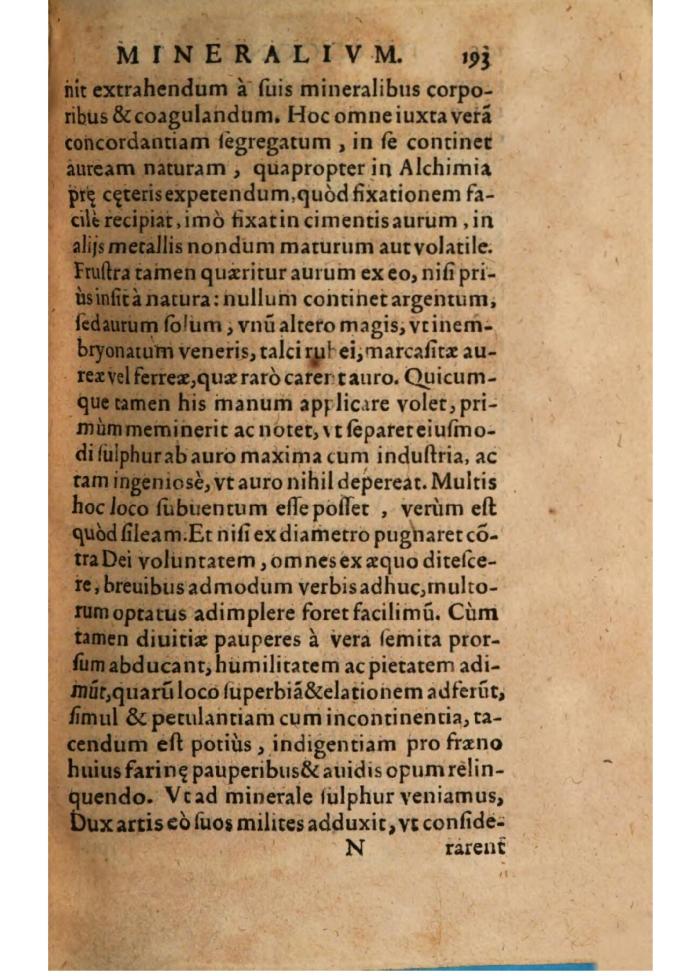 MINERALIVM. 193
nit extrahendum à ſuis mineralibus corpo-
ribus & coagulandum. Hoc omne iuxta verã
concordantiam ſegregatum, in ſe continet
auream naturam, quapropter in Alchimia
prę cęteris expetendum, quòd fixationem fa-
cilè recipiat, imò fixat in cimentis aurum, in
alijs metallis nondum maturum aut volatile.
Fruſtra tamen quæritur aurum ex eo, niſi pri-
ùs inſit à natura: nullum continet argentum,
ſed aurum ſolum, vnũ altero magis, vt in em-
bryonatum veneris, talci rubei, marcaſitæ au-
reæ vel ferreæ, quæ rarò carent auro. Quicum-
que tamen his manum applicare volet, pri-
mùm meminerit ac notet, vt ſeparet eiuſmo-
di ſulphur ab auro maxima cum induſtria, ac
tam ingeniosè, vt auro nihil depereat. Multis
hoc loco ſubuentum eſſe poſſet, verùm eſt
quòd ſileam. Et niſi ex diametro pugnaret cõ-
tra Dei voluntatem, omnes ex æquo diteſce-
re, breuibus admodum verbis adhuc, multo-
rum optatus adimplere foret facilimũ. Cùm
tamen diuitiæ pauperes à vera ſemita pror-
ſum abducant, humilitatem ac pietatem adi-
mũt, quarũ loco ſuperbiã & elationem adferũt,
ſimul & petulantiam cum incontinentia, ta-
cendum eſt potiùs, indigentiam pro fræno
huius farinę pauperibus & auidis opum relin-
quendo. Vt ad minerale ſulphur veniamus,
Dux artis eò ſuos milites adduxit, vt conſide-
N rarent